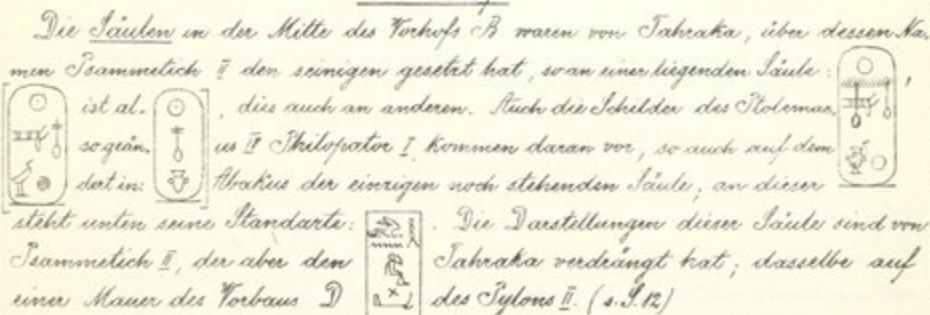 Die Säulen in der Mitte des Vorhofs B waren von Tahraka, über dessen Na-
men Psammetich II den seinigen gesetzt hat, so an einer liegenden Säule: ,
ist al- , dies auch an anderen. Auch die Schilder des Ptolemae-
so geän- us IV Philopator I. kommen daran vor, so auch auf dem
dert in: Abakus der einzigen noch stehenden Säule; an dieser
steht unten seine Standarte: . Die Darstellungen dieser Säule sind von
Psammetich II, der aber den Tahraka verdrängt hat; dasselbe auf
einer Mauer des Vorbaus D des Pylons II. (s. S. 12)